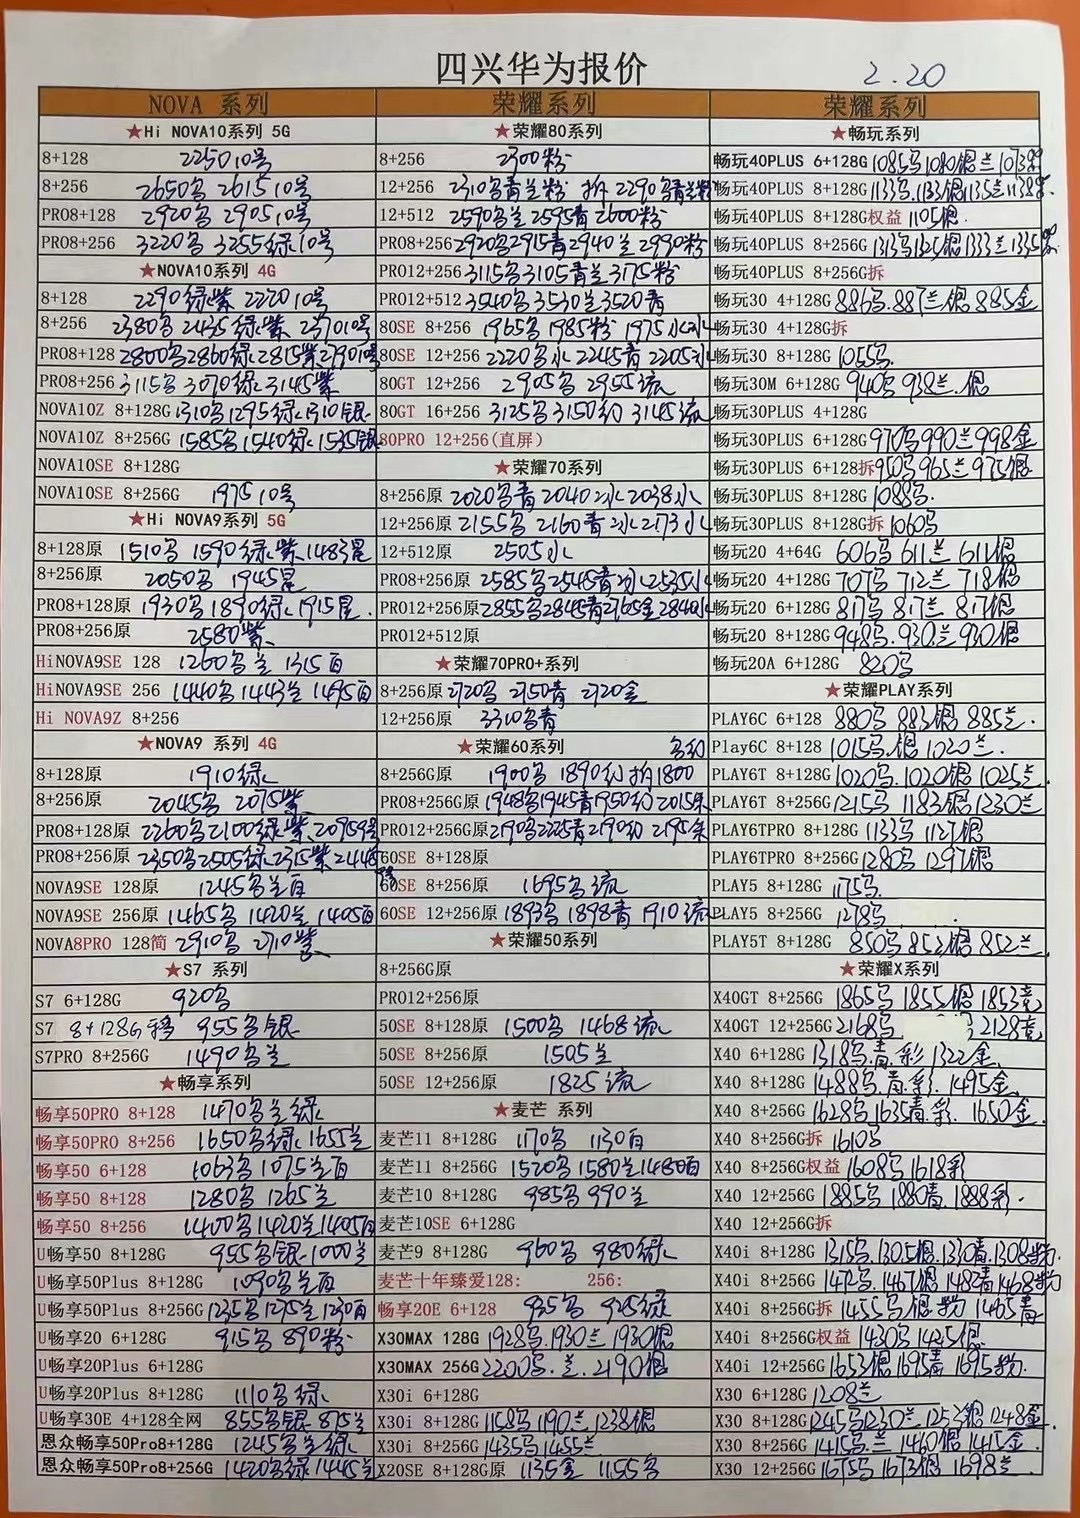 四兴华为报价
2.20
NOVA 系列
★Hi NOVA10系列 5G
8+128 2250 10号
8+256 2650乌 2615 10号
PRO8+128 2920乌 2905 10号
PRO8+256 3220乌 3255绿 10号
★NOVA10系列 4G
8+128 2290绿紫 2220 10号
8+256 2380乌 2435绿紫 2370 10号
PRO8+128 2800乌 2860绿 2815紫 2790 10号
PRO8+256 3115乌 3070绿 3145紫
NOVA10Z 8+128G 1310乌 1295绿 1310银
NOVA10Z 8+256G 1585乌 1540绿 1535银
NOVA10SE 8+128G
NOVA10SE 8+256G 1975 10号
★Hi NOVA9系列 5G
8+128原 1510乌 1590绿紫 1483星
8+256原 2050乌 1945星
PRO8+128原 1930乌 1890绿 1915星.
PRO8+256原 2580紫
HiNOVA9SE 128 1260乌兰 1315百
HiNOVA9SE 256 1440乌 1443兰 1495百
Hi NOVA9Z 8+256
★NOVA9 系列 4G
8+128原 1910绿
8+256原 2045乌 2075紫
PRO8+128原 2260乌 2100绿紫 2095 9号
PRO8+256原 2350乌 2505绿 2315紫
NOVA9SE 128原 1245乌兰百
NOVA9SE 256原 1465乌 1420兰 1405百
NOVA8PRO 128简 2910乌 2710紫
★S7 系列
S7 6+128G 920乌
S7 8+128G移 955乌银
S7PRO 8+256G 1490乌兰
★畅享系列
畅享50PRO 8+128 1470乌兰绿
畅享50PRO 8+256 1650乌绿 1655兰
畅享50 6+128 1063乌 1075兰百
畅享50 8+128 1280乌 1265兰
畅享50 8+256 1400乌 1420兰 1405百
U畅享50 8+128G 955乌银 1000兰
U畅享50Plus 8+128G 1090乌兰百
U畅享50Plus 8+256G 1235乌 1275兰 1230百
U畅享20 6+128G 915乌 890粉
U畅享20Plus 6+128G
U畅享20Plus 8+128G 1110乌绿
U畅享30E 4+128全网 855乌银 875兰
恩众畅享50Pro8+128G 1245乌兰绿
恩众畅享50Pro8+256G 1420乌绿 1445兰
荣耀系列
★荣耀80系列
8+256 2300粉
12+256 2310乌青兰粉 拆 2290乌青兰粉
12+512 2590乌兰 2595青 2600粉
PRO8+256 2920乌 2915青 2940兰 2990粉
PRO12+256 3115乌 3105青兰 3175粉
PRO12+512 3540乌 3530兰 3520青
80SE 8+256 1965乌 1985粉 1975水
80SE 12+256 2220乌水 2245青 2205水
80GT 12+256 2905乌 2955流
80GT 16+256 3125乌 3150幻 3145流
80PRO 12+256(直屏)
★荣耀70系列
8+256原 2020乌青 2040冰 2038水
12+256原 2155乌 2160青冰 2173水
12+512原 2505水
PRO8+256原 2585乌 2545青冰 2535水
PRO12+256原 2855乌 2845青 2765金 2840水
PRO12+512原
★荣耀70PRO+系列
8+256原 2720乌 2750青 2720金
12+256原 3310乌青
★荣耀60系列 乌幻
8+256G原 1900乌 1890幻 拆1800
PRO8+256G原 1948乌 1945青 1950幻 2015朱
PRO12+256G原 2190乌 2225青 2190幻 2195朱
60SE 8+128原
60SE 8+256原 1695乌流
60SE 12+256原 1893乌 1898青 1910流
★荣耀50系列
8+256G原
PRO12+256原
50SE 8+128原 1500乌 1468流
50SE 8+256原 1505兰
50SE 12+256原 1825流
★麦芒 系列
麦芒11 8+128G 1170乌 1130百
麦芒11 8+256G 1520乌 1580兰 1480百
麦芒10 8+128G 985乌 990兰
麦芒10SE 6+128G
麦芒9 8+128G 960乌 980绿
麦芒十年臻爱128: 256:
畅享20E 6+128 935乌 925绿
X30MAX 128G 1928乌 1930兰 1930银
X30MAX 256G 2200乌.兰.2190银
X30i 6+128G
X30i 8+128G 1158乌 1190兰 1238银
X30i 8+256G 1435乌 1455兰
X20SE 8+128G原 1135金 1155乌
荣耀系列
★畅玩系列
畅玩40PLUS 6+128G 1085乌 1080银兰
畅玩40PLUS 8+128G 1133乌.1133银 1135兰
畅玩40PLUS 8+128G权益 1105银.
畅玩40PLUS 8+256G 1313乌 1325银 1333兰
畅玩40PLUS 8+256G拆
畅玩30 4+128G 886乌.887兰.银 885金
畅玩30 4+128G拆
畅玩30 8+128G 1055乌.
畅玩30M 6+128G 940乌 938兰.银
畅玩30PLUS 4+128G
畅玩30PLUS 6+128G 970乌 990兰 998金
畅玩30PLUS 6+128拆 950乌 965兰 975银
畅玩30PLUS 8+128G 1088乌.
畅玩30PLUS 8+128G拆 1060乌
畅玩20 4+64G 606乌 611兰 611银
畅玩20 4+128G 707乌 712兰 718银
畅玩20 6+128G 817乌 817兰 817银
畅玩20 8+128G 948乌.930兰.930银
畅玩20A 6+128G 820乌
★荣耀PLAY系列
PLAY6C 6+128 880乌 883银 885兰.
Play6C 8+128 1015乌.银 1020兰.
PLAY6T 8+128G 1020乌.1020银 1025兰.
PLAY6T 8+256G 1215乌 1183银 1230兰
PLAY6TPRO 8+128G 1133乌 1127银
PLAY6TPRO 8+256G 1280乌 1297银
PLAY5 8+128G 1175乌.
PLAY5 8+256G 1278乌.
PLAY5T 8+128G 850乌 852银 852兰
★荣耀X系列
X40GT 8+256G 1865乌 1855银 1853竞
X40GT 12+256G 2168乌 2128竞
X40 6+128G 1318乌.青.彩 1322金
X40 8+128G 1488乌.青.彩.1495金
X40 8+256G 1628乌 1635青.彩.1650金
X40 8+256G拆 1610乌
X40 8+256G权益 1608乌 1618彩
X40 12+256G 1885乌 1880青 1888彩.
X40 12+256G拆
X40i 8+128G 1315乌.1305银.1330青.1308粉
X40i 8+256G 1472乌.1467银 1482青 1468粉
X40i 8+256G拆 1455乌银粉 1465青
X40i 8+256G权益 1430乌 1425银
X40i 12+256G 1653银 1695青 1695粉.
X30 6+128G 1208兰
X30 8+128G 1245乌 1230兰 1253银 1248金
X30 8+256G 1415乌.兰 1460银 1415金
X30 12+256G 1675乌 1673银 1698兰